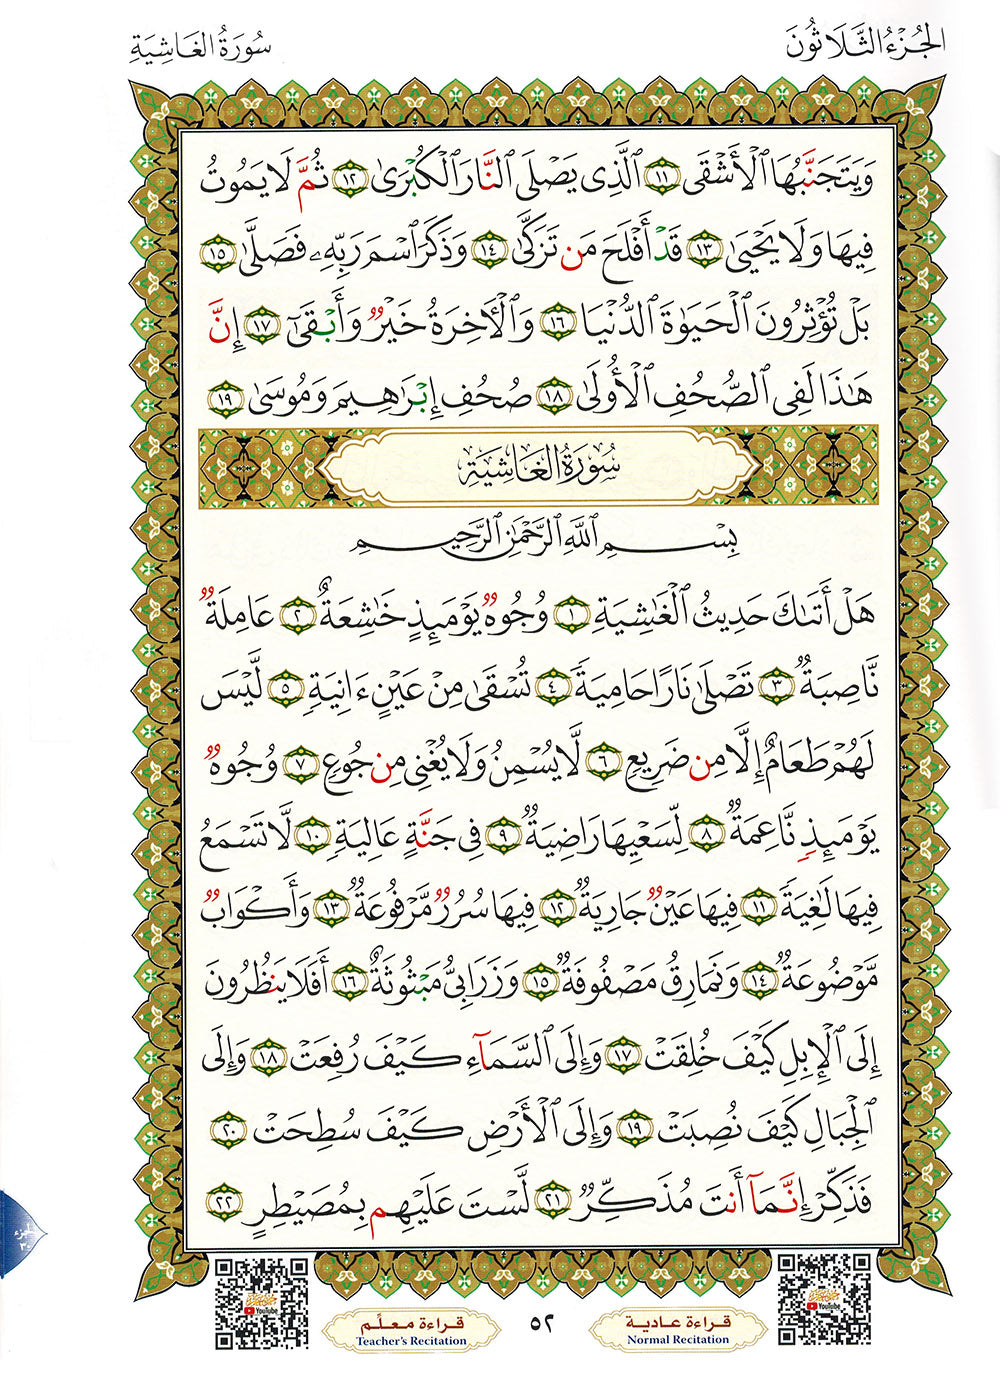 الجُزْءُ الثَّلَاثُونَ
سُورَةُ الغَاشِيَةِ
وَيَتَجَنَّبُهَا ٱلْأَشْقَى ١١ ٱلَّذِى يَصْلَى ٱلنَّارَ ٱلْكُبْرَىٰ ١٢ ثُمَّ لَا يَمُوتُ
فِيهَا وَلَا يَحْيَىٰ ١٣ قَدْ أَفْلَحَ مَن تَزَكَّىٰ ١٤ وَذَكَرَ ٱسْمَ رَبِّهِۦ فَصَلَّىٰ ١٥
بَلْ تُؤْثِرُونَ ٱلْحَيَوٰةَ ٱلدُّنْيَا ١٦ وَٱلْـَٔاخِرَةُ خَيْرٌ وَأَبْقَىٰٓ ١٧ إِنَّ
هَـٰذَا لَفِى ٱلصُّحُفِ ٱلْأُولَىٰ ١٨ صُحُفِ إِبْرَٰهِيمَ وَمُوسَىٰ ١٩
سُورَةُ الغَاشِيَةِ
بِسْمِ ٱللَّهِ ٱلرَّحْمَـٰنِ ٱلرَّحِيمِ
هَلْ أَتَىٰكَ حَدِيثُ ٱلْغَـٰشِيَةِ ١ وُجُوهٌ يَوْمَئِذٍ خَـٰشِعَةٌ ٢ عَامِلَةٌ
نَّاصِبَةٌ ٣ تَصْلَىٰ نَارًا حَامِيَةً ٤ تُسْقَىٰ مِنْ عَيْنٍ ءَانِيَةٍ ٥ لَّيْسَ
لَهُمْ طَعَامٌ إِلَّا مِن ضَرِيعٍ ٦ لَّا يُسْمِنُ وَلَا يُغْنِى مِن جُوعٍ ٧ وُجُوهٌ
يَوْمَئِذٍ نَّاعِمَةٌ ٨ لِّسَعْيِهَا رَاضِيَةٌ ٩ فِى جَنَّةٍ عَالِيَةٍ ١٠ لَّا تَسْمَعُ
فِيهَا لَـٰغِيَةً ١١ فِيهَا عَيْنٌ جَارِيَةٌ ١٢ فِيهَا سُرُرٌ مَّرْفُوعَةٌ ١٣ وَأَكْوَابٌ
مَّوْضُوعَةٌ ١٤ وَنَمَارِقُ مَصْفُوفَةٌ ١٥ وَزَرَابِىُّ مَبْثُوثَةٌ ١٦ أَفَلَا يَنظُرُونَ
إِلَى ٱلْإِبِلِ كَيْفَ خُلِقَتْ ١٧ وَإِلَى ٱلسَّمَآءِ كَيْفَ رُفِعَتْ ١٨ وَإِلَى
ٱلْجِبَالِ كَيْفَ نُصِبَتْ ١٩ وَإِلَى ٱلْأَرْضِ كَيْفَ سُطِحَتْ ٢٠
فَذَكِّرْ إِنَّمَآ أَنتَ مُذَكِّرٌ ٢١ لَّسْتَ عَلَيْهِم بِمُصَيْطِرٍ ٢٢
YouTube
قراءة عادية
Normal Recitation
٥٢
قراءة معلّم
Teacher's Recitation
YouTube